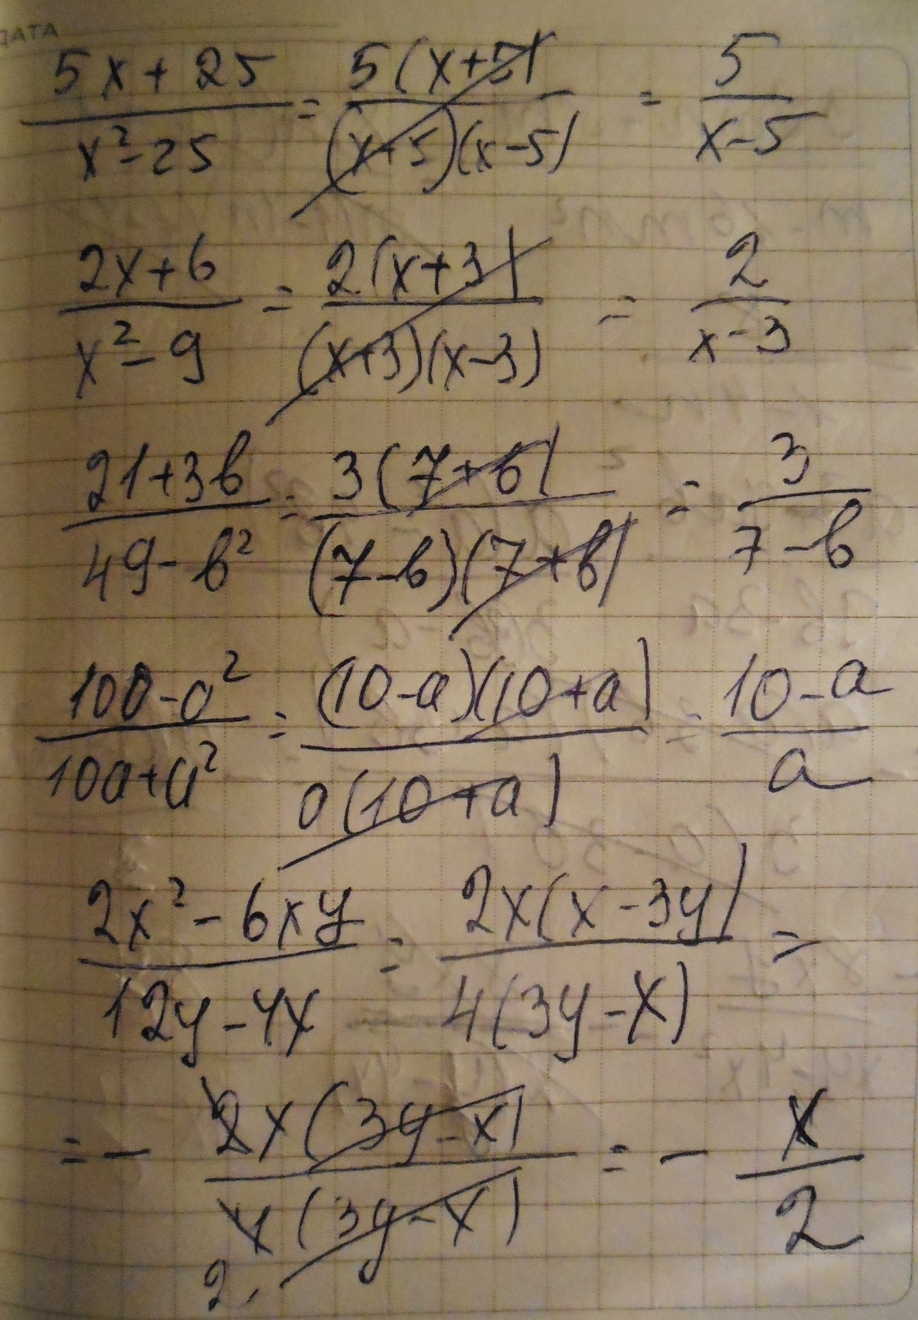 ДАТА
5x + 25 / x² - 25 = 5(x+5) / (x+5)(x-5) = 5 / x-5
2x+6 / x² - 9 = 2(x+3) / (x+3)(x-3) = 2 / x-3
21+3b / 49-b² = 3(7+b) / (7-b)(7+b) = 3 / 7-b
100-a² / 10a+a² = (10-a)(10+a) / a(10+a) = 10-a / a
2x² - 6xy / 12y-4x = 2x(x-3y) / 4(3y-x) =
= - 2x(3y-x) / 4(3y-x) = - x / 2
2